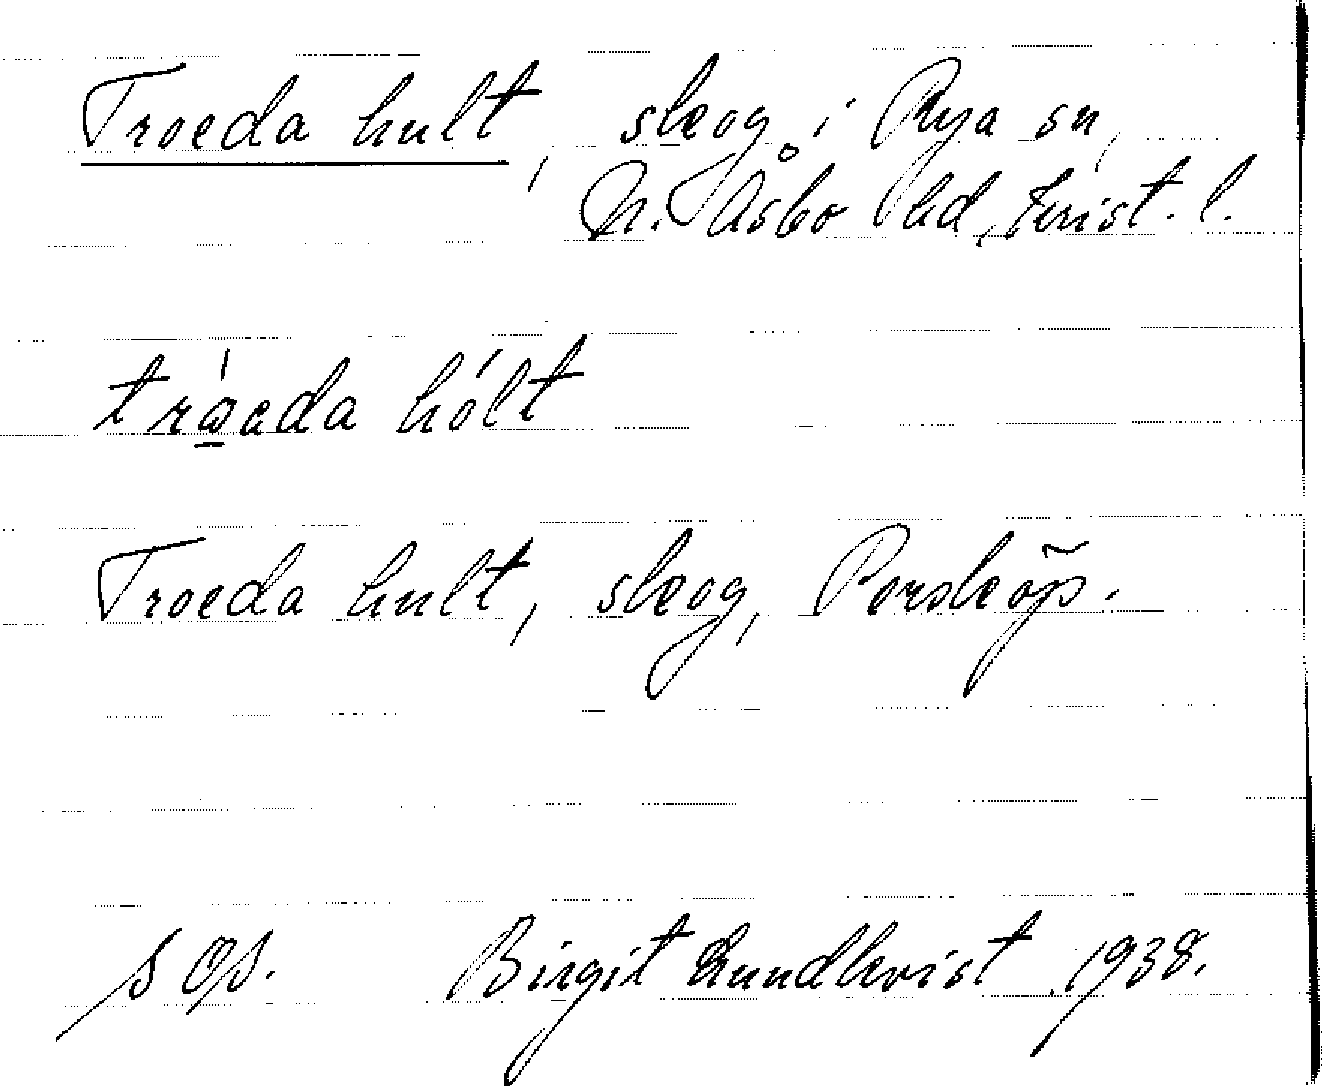 Troeda hult, skog i Rya sn,
N. Åsbo hd, Krist. l.
tròeda hólt
Troeda hult, skog, Porsköp.
Birgit Lundkvist 1938.